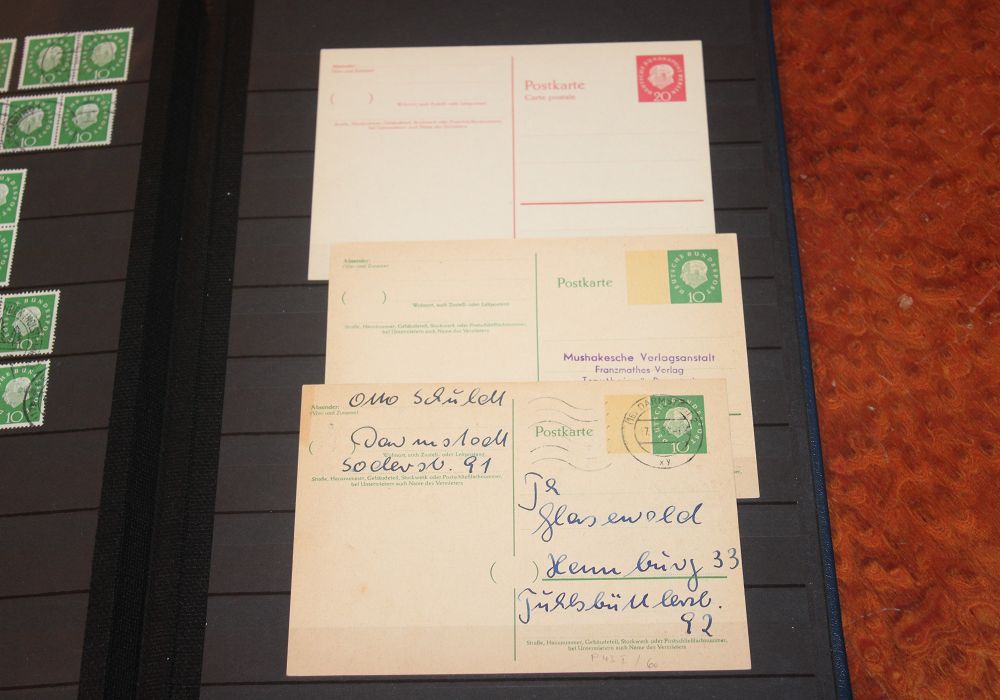 Absender:
(Vor- und Zuname)
Postkarte
Carte postale
DEUTSCHE BUNDESPOST BERLIN
20
( )
Wohnort, auch Zustell- oder Leitpostamt
Straße, Hausnummer, Gebäudeteil, Stockwerk oder Postschließfachnummer,
bei Untermietern auch Name des Vermieters
Absender:
(Vor- und Zuname)
Postkarte
DEUTSCHE BUNDESPOST
10
( )
Wohnort, auch Zustell- oder Leitpostamt
Straße, Hausnummer, Gebäudeteil, Stockwerk oder Postschließfachnummer,
bei Untermietern auch Name des Vermieters
Mushakesche Verlagsanstalt
Franzmathes-Verlag
Absender:
(Vor- und Zuname)
Otto Schuldt
Darmstadt
Wohnort, auch Zustell- oder Leitpostamt
Soderstr. 91
Straße, Hausnummer, Gebäudeteil, Stockwerk oder Postschließfachnummer,
bei Untermietern auch Name des Vermieters
Postkarte
DEUTSCHE BUNDESPOST
10
xy
Fa
Glasewald
( )
Hamburg 33
Fuhlsbüttlerstr.
92
Straße, Hausnummer, Gebäudeteil, Stockwerk oder Postschließfachnummer,
bei Untermietern auch Name des Vermieters
10
10
10
10
BUNDESPOST
10
10